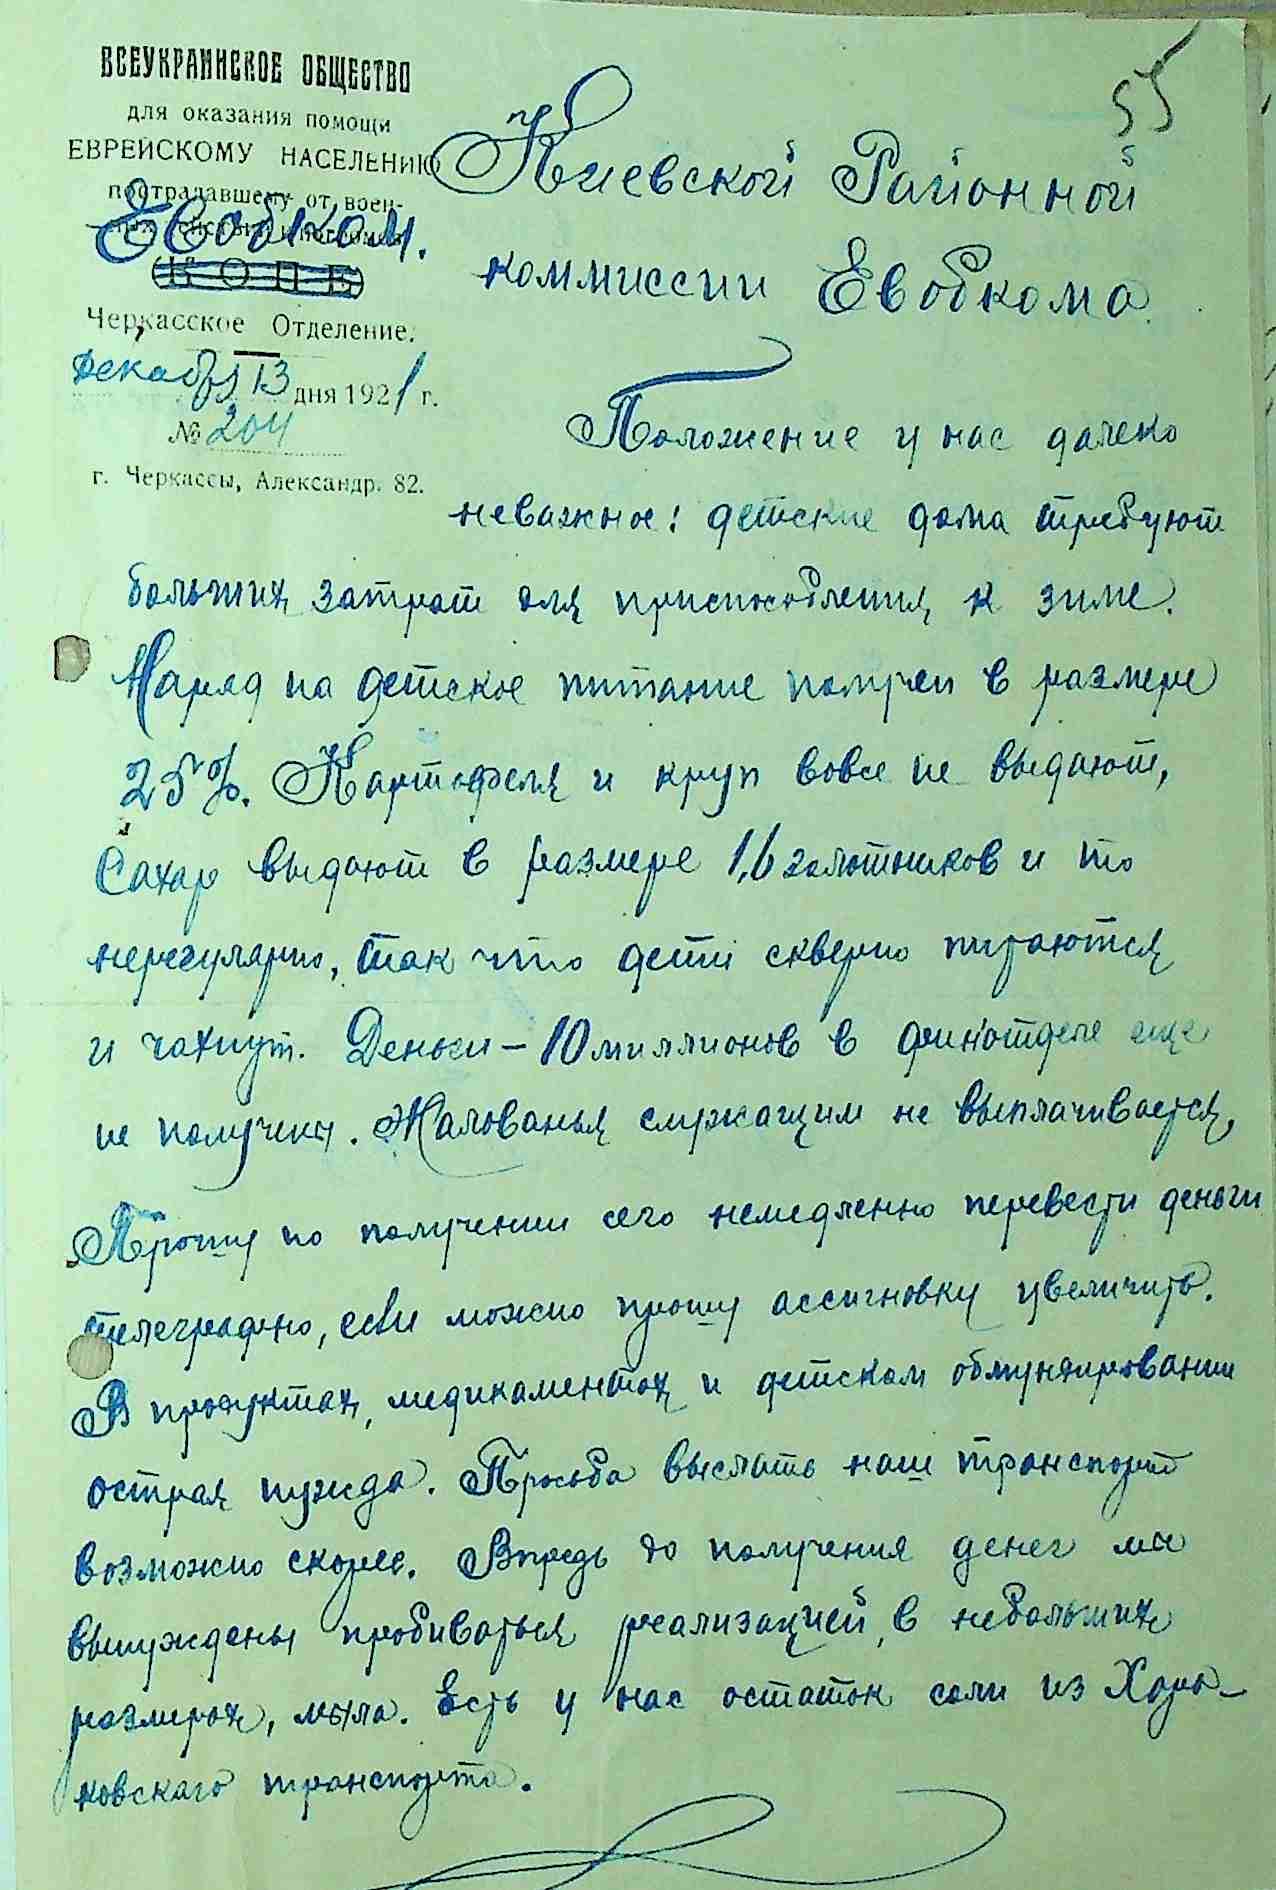 55
ВСЕУКРАИНСКОЕ ОБЩЕСТВО
для оказания помощи
ЕВРЕЙСКОМУ НАСЕЛЕНИЮ
пострадавшему от воен-
Евобком.
(КОПЕ)
Черкасское Отделение.
Декабря 13 дня 1921 г.
№ 204
г. Черкассы, Александр. 82.
Киевской Районной
коммиссии Евобкома.
Положение у нас далеко
неважное: детские дома требуют
больших затрат для приспособления к зиме.
Наряд на детское питание получен в размере
25%. Картофеля и круп вовсе не выдают,
Сахар выдают в размере 1,6 золотников и то
нерегулярно, так что дети скверно питаются
и чахнут. Деньги – 10 миллионов в финотделе еще
не получены. Жалованья служащим не выплачивается,
Прошу по получении сего немедленно перевести деньги
телеграфно, если можно прошу ассигновку увеличить.
В продуктах, медикаментах и детском обмундировании
острая нужда. Просьба выслать наш транспорт
возможно скорее. Впредь до получения денег мы
вынуждены пробиваться реализацией, в небольших
размерах, мыла. Есть у нас остаток соли из Харь-
ковскаго транспорта.